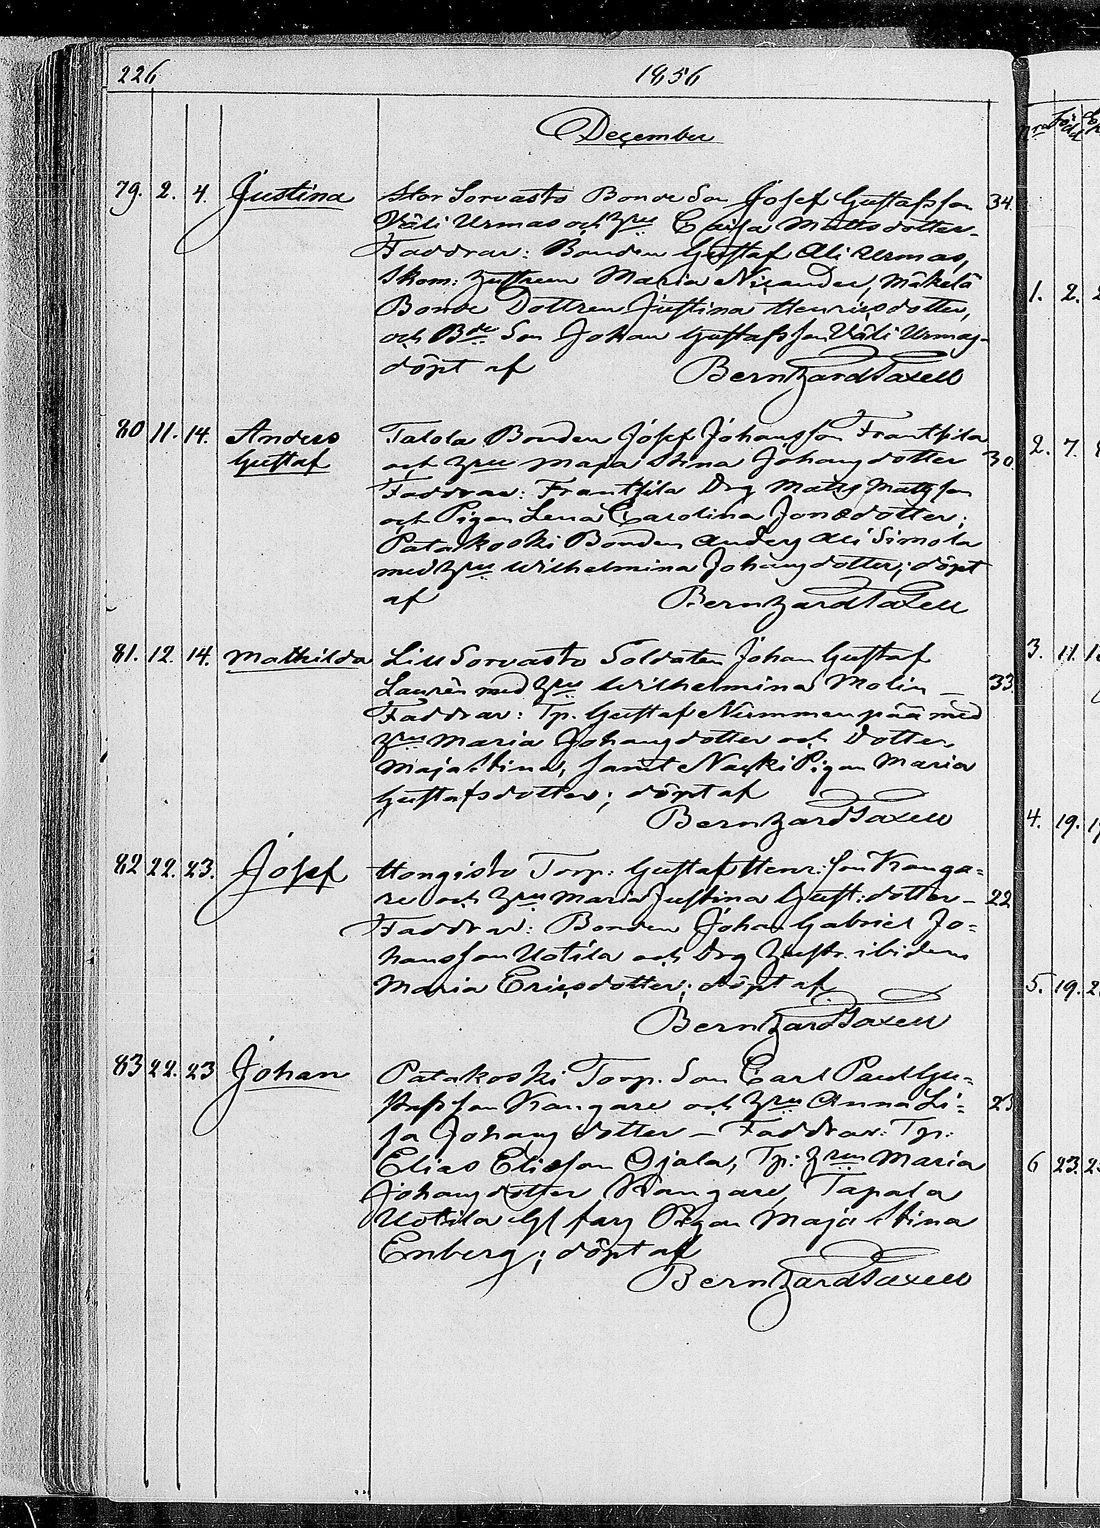 226 1856
December
79. 2. 4. Justina Stor Sorvasto Bonde Son Josef Gustafsson 34.
Väli Urmas och Hru Caisa Mattsdotter.
Faddrar: Bonden Gustaf Ali Urmas,
Skom: Hustrun Maria Nicander, Mäkelä
Bonde Dottren Justina Henricsdotter,
och Bde Son Johan Gustafsson Väli Urmas.
döpt af Bernhard Taxell
80 11. 14. Anders Gustaf Talola Bonden Josef Johansson Frantsila
och Hru Maja Stina Johansdotter 30.
Faddrar: Frantsila Drg Matts Mattsson
och Pigan Lena Carolina Jonsdotter;
Patakoski Bonden Anders Ali Simola
med Hru Wilhelmina Johansdotter; döpt
af Bernhard Taxell
81. 12. 14. Mathilda Lill Sorvasto Soldaten Johan Gustaf
Laurén med Hru Wilhelmina Molin — 33.
Faddrar: Tp. Gustaf Nummenpää med
Hru Maria Johansdotter och Dotter
Maja Stina, samt Naski Pigan Maria
Gustafsdotter; döpt af
Bernhard Taxell
82 22. 23. Josef Hongisto Torp: Gustaf Henr:son Kanga-
re och Hru Maria Justina Gust:dotter — 22
Faddrar: Bonden Johan Gabriel Jo-
hansson Uotila och Drg Hustr. ibidem
Maria Ericsdotter; döpt af
Bernhard Taxell
83 22. 23 Johan Patakoski Torp. Son Carl Paul Gu-
stafsson Kangare och Hru Anna Li- 23
sa Johansdotter — Faddrar: Tp:
Elias Eliasson Ojala, Tp: Hrun Maria
Johansdotter Kangare, Tapala
Uotila Pigan Maja Stina
Enberg; döpt af
Bernhard Taxell